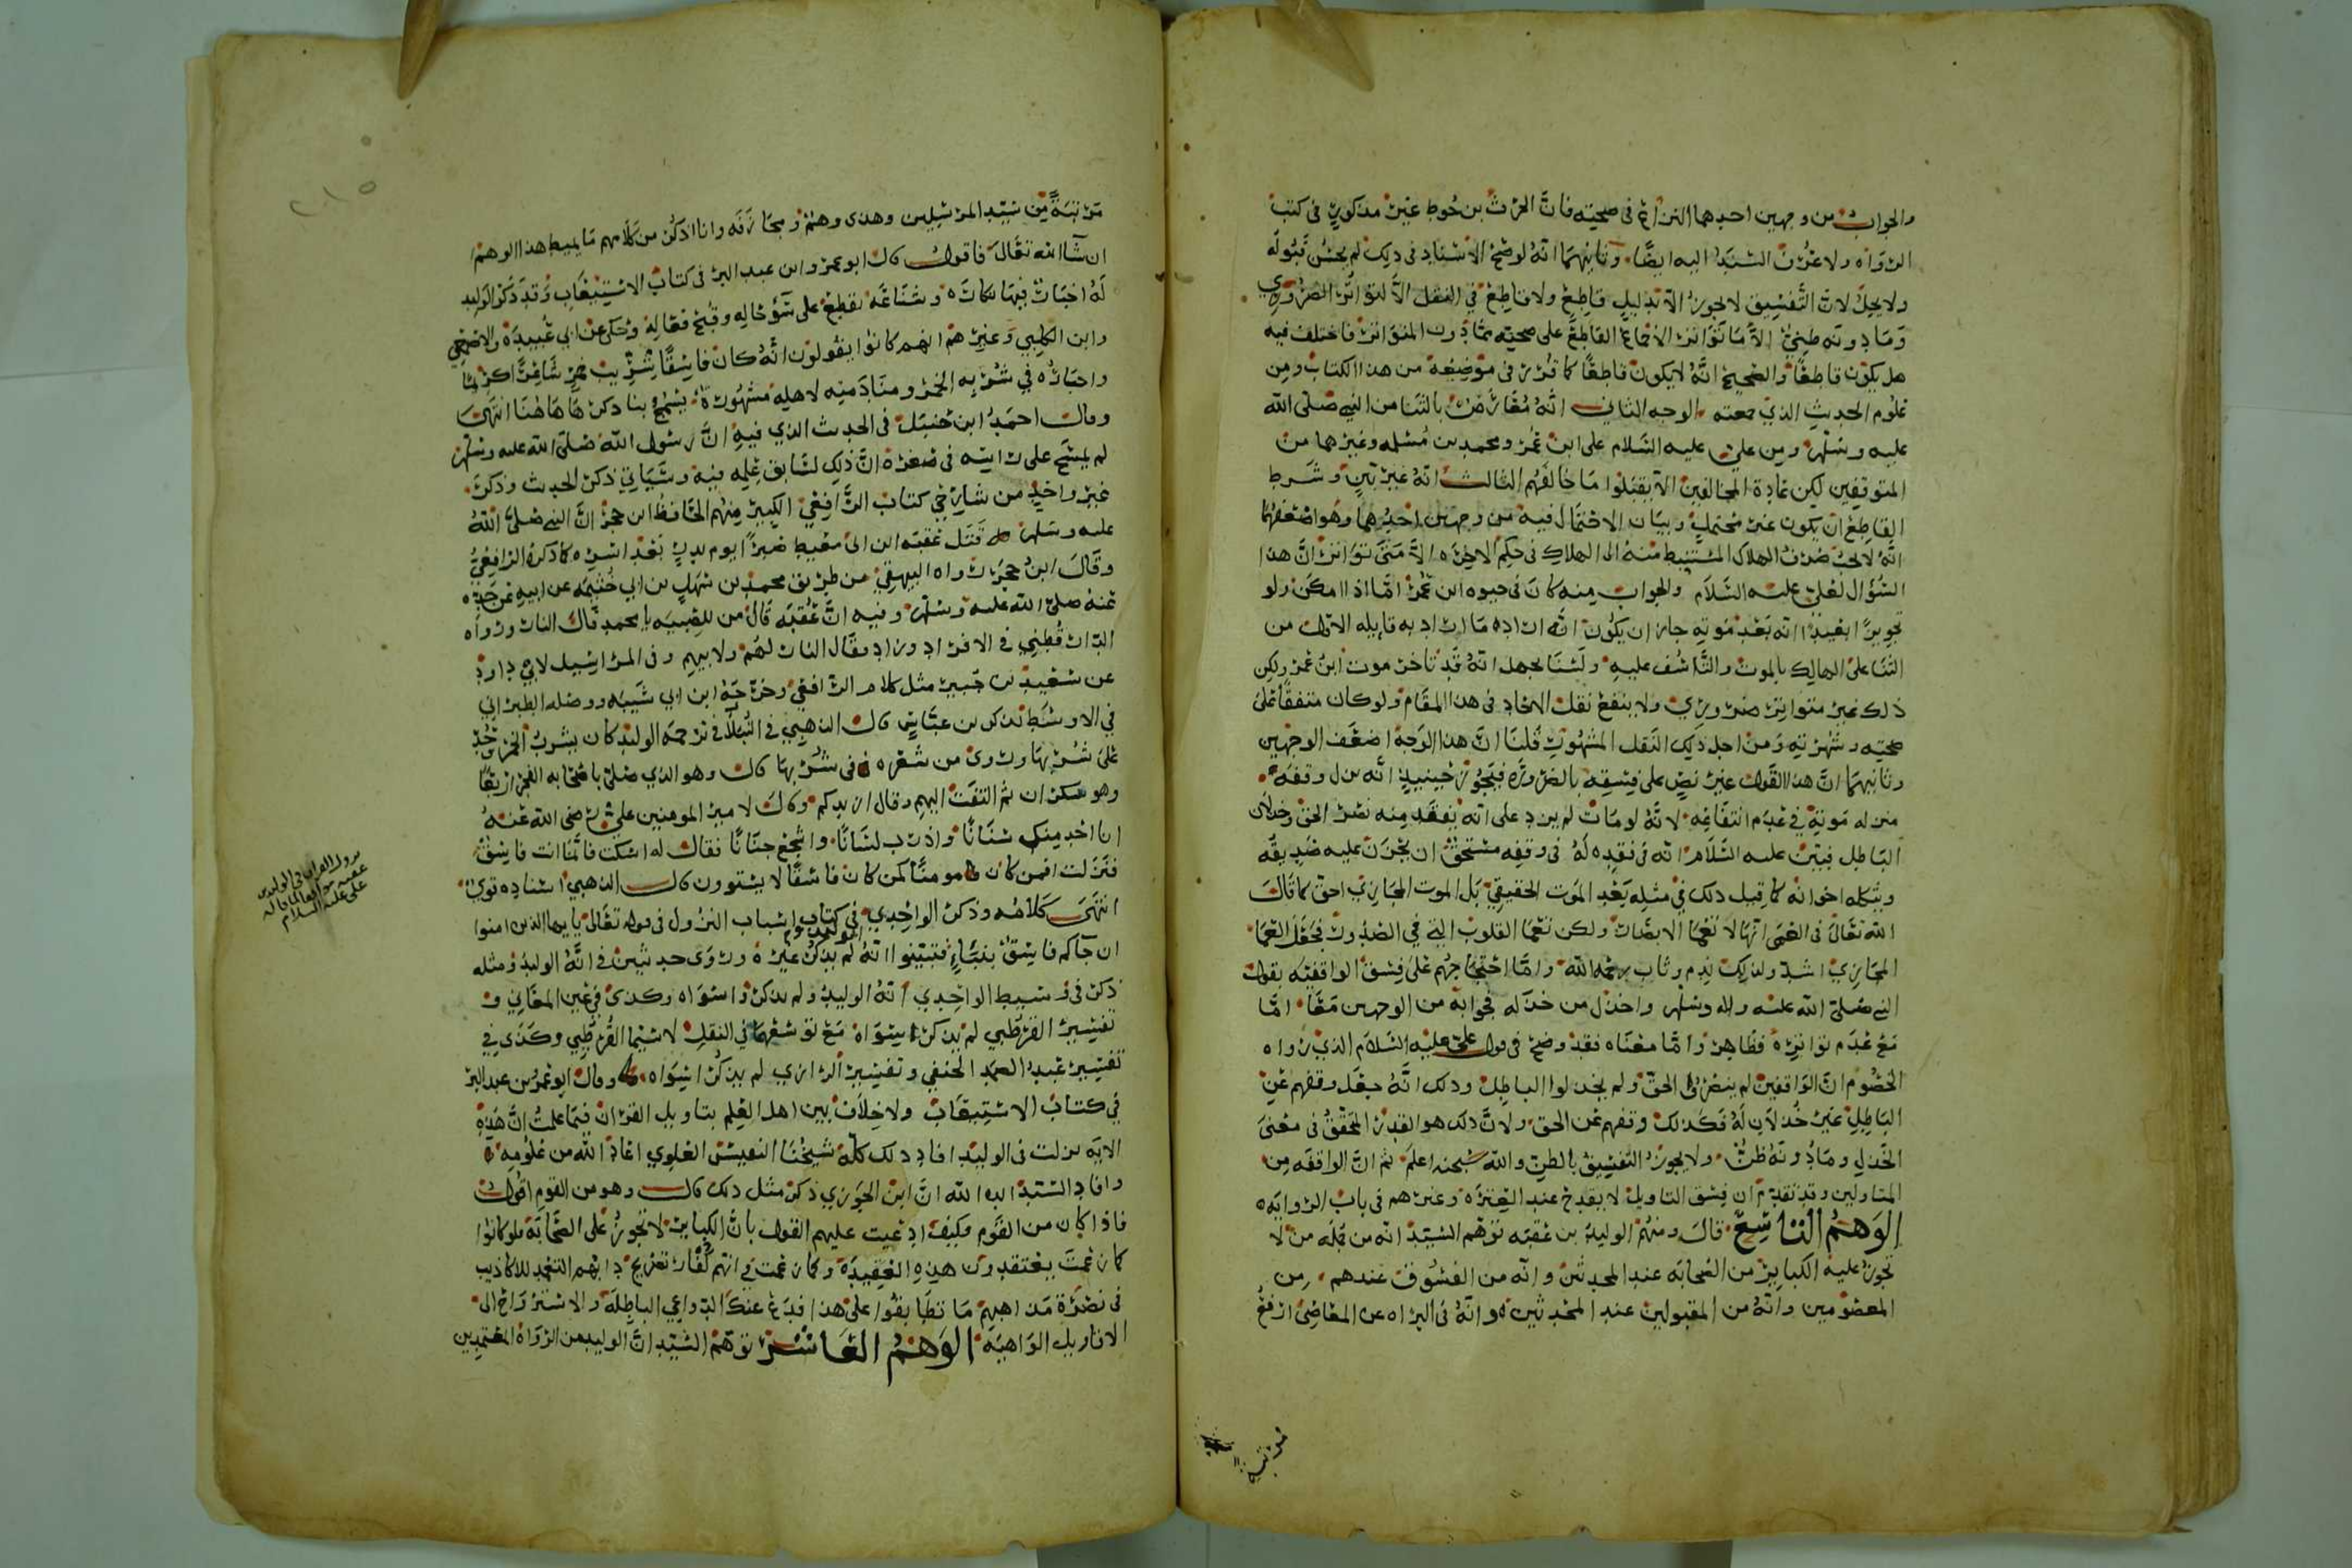 والجواب من وجهين احدهما النزاع في صحيته فان الحرث بن حوط غير مذكور في كتب
الرواه ولا عزف السيد اليه ايضا وثانيهما انه لو صح الاسناد في ذلك لم يحسن قبوله
ولا يحل لان التفسيق لا يجوز الا بدليل قاطع ولا قاطع في النقل الا التواتر الضروري
وما دونه ظني الا ما تواتر الاجماع القاطع على صحته مما دون المتواتر فاختلف فيه
هل يكون قاطعا والصحيح انه لا يكون قاطعا كما قرر في موضعه من هذا الكتاب ومن
علوم الحديث الذي جمعته الوجه الثاني انه معارض بالثنا من النبي صلى الله
عليه وسلم ومن علي عليه السلام على ابن عمر ومحمد بن مسلمه وغيرهما من
المتوقفين لكن عادة المخالفين الا يقبلوا ما خالفهم الثالث انه غير بين وشرط
القاطع ان يكون غير محتمل وبيان الاحتمال فيه من وجهين احدهما وهو اضعفهما
انه لا يجب صرف الهلاك المستنبط منه الى الهلاك في حكم الاخره الا متى تواتر ان هذا
السؤال لعلي عليه السلام والجواب منه كان في حيوه ابن عمر اما اذا امكن ولو
تجويزا بعيدا انه بعد موته جاز ان يكون انه اراده ما اراد به قايله الاول من
الثنا على الهالك بالموت والتاسف عليه ولسنا نجهل انه قد تاخر موت ابن عمر ولكن
ذلك غير متواتر ضروري ولا ينفع نقل الاحاد في هذا المقام ولو كان متفقا على
صحته وشهرته ومن اجل ذلك النقل المشهور قلنا ان هذا الوجه اضعف الوجهين
وثانيهما ان هذا القول غير نص على فسقه بالضرورة فيجوز حينيذ انه نزل وقفه
منزله موته في عدم انتفاعه لانه لو مات لم يزد على انه يفقد منه نصر الحق وخذلان
الباطل فبين عليه السلام انه في فقده له في وقفه مستحق ان يحزن عليه صديقه
ويثكله اخوانه كما قيل ذلك في مثله بعد الموت الحقيقي بل الموت المجازي احق كما قال
الله تعالى في العمى انها لا تعما الابصار ولكن تعما القلوب التي في الصدور فجعل العما
المجازي اشد ولذلك ندم وتاب رحمه الله واما احتجاجهم على فسق الواقفيه بقول
النبي صلى الله عليه واله وسلم واخذل من خذله فجوابه من الوجهين معا اما
مع عدم تواتره فظاهر واما معناه فقد وضح في قول علي عليه السلام الذي رواه
الخصوم ان الواقفين لم ينصروا الحق ولم يخذلوا الباطل وذلك انه جعل وقفهم عن
الباطل غير خذلان له فكذلك وقفهم عن الحق ولان ذلك هو القدر المحقق في معنى
الخذل وما دونه ظن ولا يجوز التفسيق بالظن والله سبحنه اعلم ثم ان الواقفه من
المتاولين وقد تقدم ان فسق التاويل لا يقدح عند العترة وغيرهم في باب الروايه
الوهم التاسع قال ومنهم الوليد بن عقبه توهم السيد انه من جمله من لا
تجوز عليه الكباير من الصحابه عند المحدثين وانه من الفسوق عندهم من
المعصومين وانه من المقبولين عند المحدثين وانه في البراه عن المعاصي ارفع
مرتبة
مرتبة من سيد المرسلين وهذى وهم ومجازفه وانا اذكر من كلامهم ما يميط هذا الوهم
ان شا الله تعالى فاقول قال ابو عمر وابن عبد البر في كتاب الاستيعاب وقد ذكر الوليد
له اخبار فيها نكاره وشناعه تقطع على سؤ حاله وقبح فعاله وحكى عن ابي عبيده والاصمعي
وابن الكلبي وغيرهم انهم كانوا يقولون انه كان فاسقا شريب خمر شاعرا كريما
واخباره في شربه الخمر ومنادمته لاهله مشهورة يسمج بنا ذكرها هاهنا انتهى
وقال احمد ابن حنبل في الحديث الذي فيه ان رسول الله صلى الله عليه وسلم
لم يمسح على راسه في صغره ان ذلك لسابق علمه فيه وسياتي ذكر الحديث وذكر
غير واحد من شارحي كتاب الرافعي الكبير منهم الحافظ ابن حجر ان النبي صلى الله
عليه وسلم قتل عقبه ابن ابي معيط صبرا يوم بدر بعد اسره كما ذكره الرافعي
وقال ابن حجر رواه البيهقي من طريق محمد بن سهل بن ابي حثيمه عن ابيه عن جده
عنه صلى الله عليه وسلم وفيه ان عقبه قال من للصبيه يا محمد قال النار ورواه
الدارقطني في الافراد وزاد فقال النار لهم ولابيهم وفي المراسيل لابي داود
عن سعيد بن جبير مثل كلام الرافعي وخرجه ابن ابي شيبه ووصله الطبراني
في الاوسط بذكر بن عباس قال الذهبي في النبلا في ترجمه الوليد كان يشرب الخمر وحد
على شربها وروى من شعره في شربها قال وهو الذي صلى باصحابه الفجر اربعا
وهو سكران ثم التفت اليهم وقال ازيدكم وقال لامير المومنين علي رضي الله عنه
انا احد منك سنانا واذرب لسانا واشجع جنانا فقال له اسكت فانما انت فاسق
فنزلت افمن كان مومنا كمن كان فاسقا لا يستوون قال الذهبي اسناده قوي
انتهى كلامه وذكر الواحدي في كتاب اسباب النزول في قوله تعالى يا ايها الذين امنوا
ان جاكم فاسق بنباء فتبينوا انه لم يذكر غيره وروى حديثين في انه الوليد ومثله
ذكر في وسيط الواحدي انه الوليد ولم يذكر سواه وكذى في عين المعاني و
تفسير القرطبي لم يذكر سواه مع توسعهما في النقل لا سيما القرطبي وكذى في
تفسير عبد الصمد الحنفي وتفسير الرازي لم يذكرا سواه وقال ابو عمر بن عبد البر
في كتاب الاستيعاب ولا خلاف بين اهل العلم بتاويل القران فيما علمت ان هذه
الايه نزلت في الوليد افاد ذلك كله شيخنا النفيس العلوي اعاد الله من علومه
وافاد السيد ايده الله ان ابن الجوزي ذكر مثل ذلك قال وهو من القوم اقول
فاذا كان من القوم فكيف ادعيت عليهم القول بان الكباير لا تجوز على الصحابة فلو كانوا
كما زعمت يعتقدون هذه العقيدة وكما زعمت في انهم كفار تصريح دابهم التعمد للاكاذيب
في نصرة مذاهبهم ما تطابقوا على هذا فدع عنك الدواعي الباطلة والاسترواح الى
الاقاويل الواهية الوهم العاشر توهم السيد ان الوليد من الرواة المعتمدين
نزول القران في الوليد بن
عقبه موافقا لما قاله
علي عليه السلام